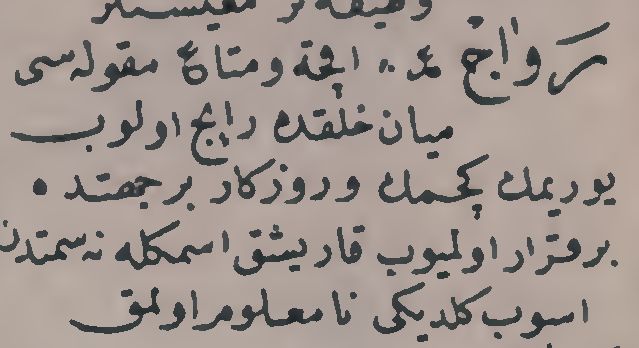 رواج ع. اقچه و متاع مقوله‌سی
میان خلقده رایج اولوب
یوریمك كچمك و روزكار بر جهتده
برقرار اولمیوب قاریشق اسمكله نه سمتدن
اسوب كلدیكی نامعلوم اولمق